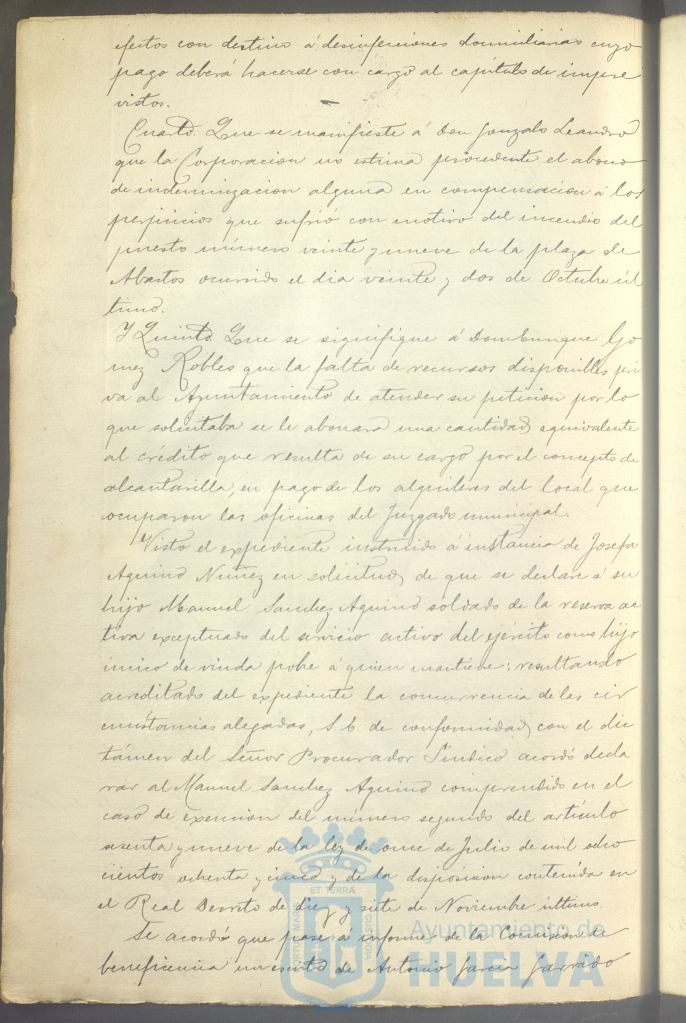 efectos con destino á desinfecciones domiciliarias cuyo
pago deberá hacerse con cargo al capítulo de impre
vistos.
Cuarto. Que se manifieste á Don Gonzalo Leandro
que la Corporacion no estima procedente el abono
de indemnizacion alguna en compensacion á los
perjuicios que sufrió con motivo del incendio del
puesto número veinte y nueve de la plaza de
Abastos ocurrido el dia veinte y dos de Octubre úl
timo.
Y Quinto. Que se signifique á Don Enrique Go
mez Robles que la falta de recursos disponibles pri
va al Ayuntamiento de atender su peticion por lo
que solicitaba se le abonara una cantidad equivalente
al crédito que resulta de su cargo por el concepto de
alcantarilla, en pago de los alquileres del local que
ocuparon las oficinas del Juzgado municipal.
Visto el expediente instruido á instancia de Josefa
Aquino Nuñez en solicitud de que se declare á su
hijo Manuel Sanchez Aquino soldado de la reserva ac
tiva exceptuado del servicio activo del ejército como hijo
único de viuda pobre á quien mantiene: resultando
acreditado del expediente la concurrencia de las cir
cunstancias alegadas, S. E. de conformidad con el dic
támen del Señor Procurador Síndico acordó decla
rar al Manuel Sanchez Aquino comprendido en el
caso de exencion del número segundo del artículo
sesenta y nueve de la ley de once de Julio de mil ocho
cientos ochenta y cinco y de la disposicion contenida en
el Real Decreto de diez y siete de Noviembre último.
Se acordó que pase á informe de la Comision de
beneficencia un escrito de Antonio Garcia Garrido
PORTUS MARIS
ET TERRÆ
CUSTODIA
Ayuntamiento de
HUELVA